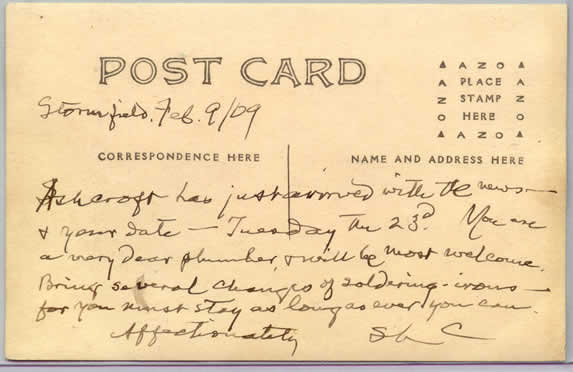 POST CARD
▲ A Z O ▲
A PLACE A
Z STAMP Z
O HERE O
▲ A Z O ▲
Stormfield, Feb. 9/09
CORRESPONDENCE HERE
NAME AND ADDRESS HERE
Ashcroft has just arrived with the news—
& your date — Tuesday the 23d. You are
a very dear plumber, & will be most welcome.
Bring several changes of soldering-irons—
for you must stay as long as ever you can.
Affectionately
SLC